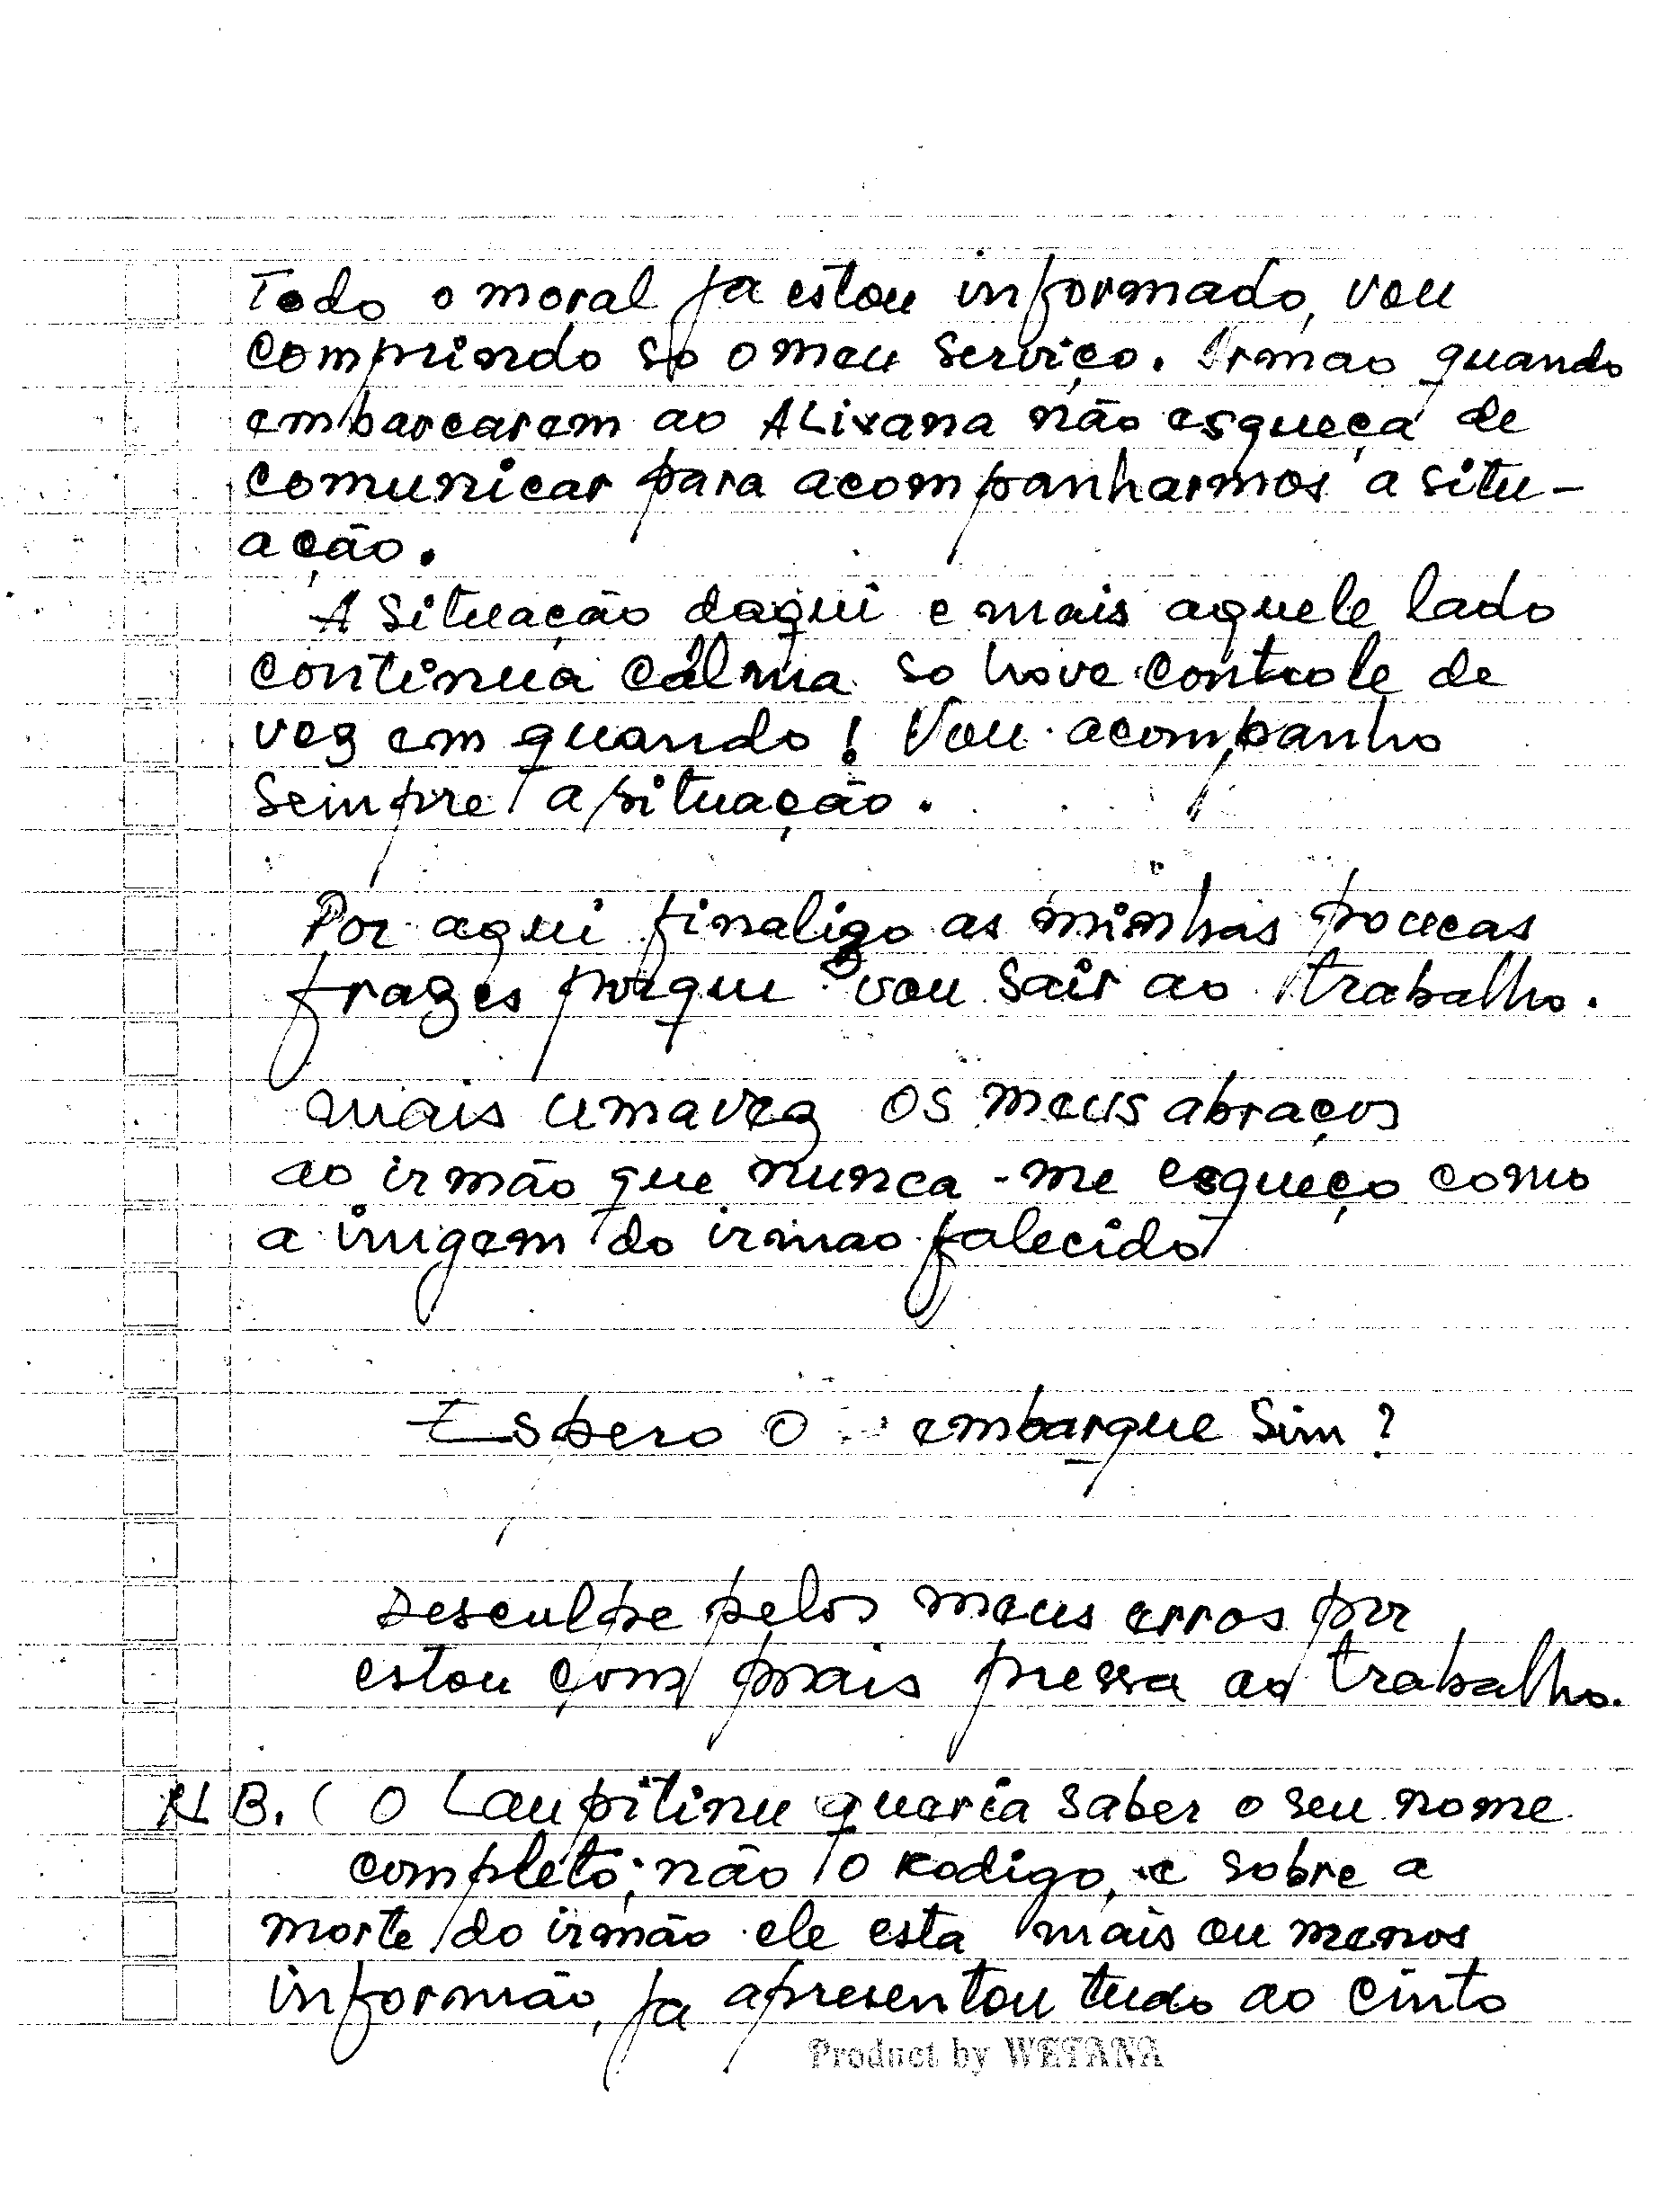 Todo o moral ja estou informado, vou
comprindo so o meu serviço. Irmao quando
embarcarem ao ALixana não esqueça de
comunicar para acompanharmos a situ-
ação.
A situação daqui e mais aquele lado
continua calma so hove controle de
vez em quando! Vou acompanho
sempre a situação.
Por aqui finalizo as minhas poucas
frazes porque vou sair ao trabalho.
mais umavez os meus abraços
ao irmão que nunca-me esqueço como
a imigem do irmao falecido
Espero o embarque sim?
Desculpe pelos meus erros por
estou com mais pressa ao trabalho.
N B. ( O Laupitinu queria saber o seu nome
completo; não o kodigo, e sobre a
morte do irmão ele esta mais ou menos
informão, ja apresentou tudo ao cinto
Product by WETANA